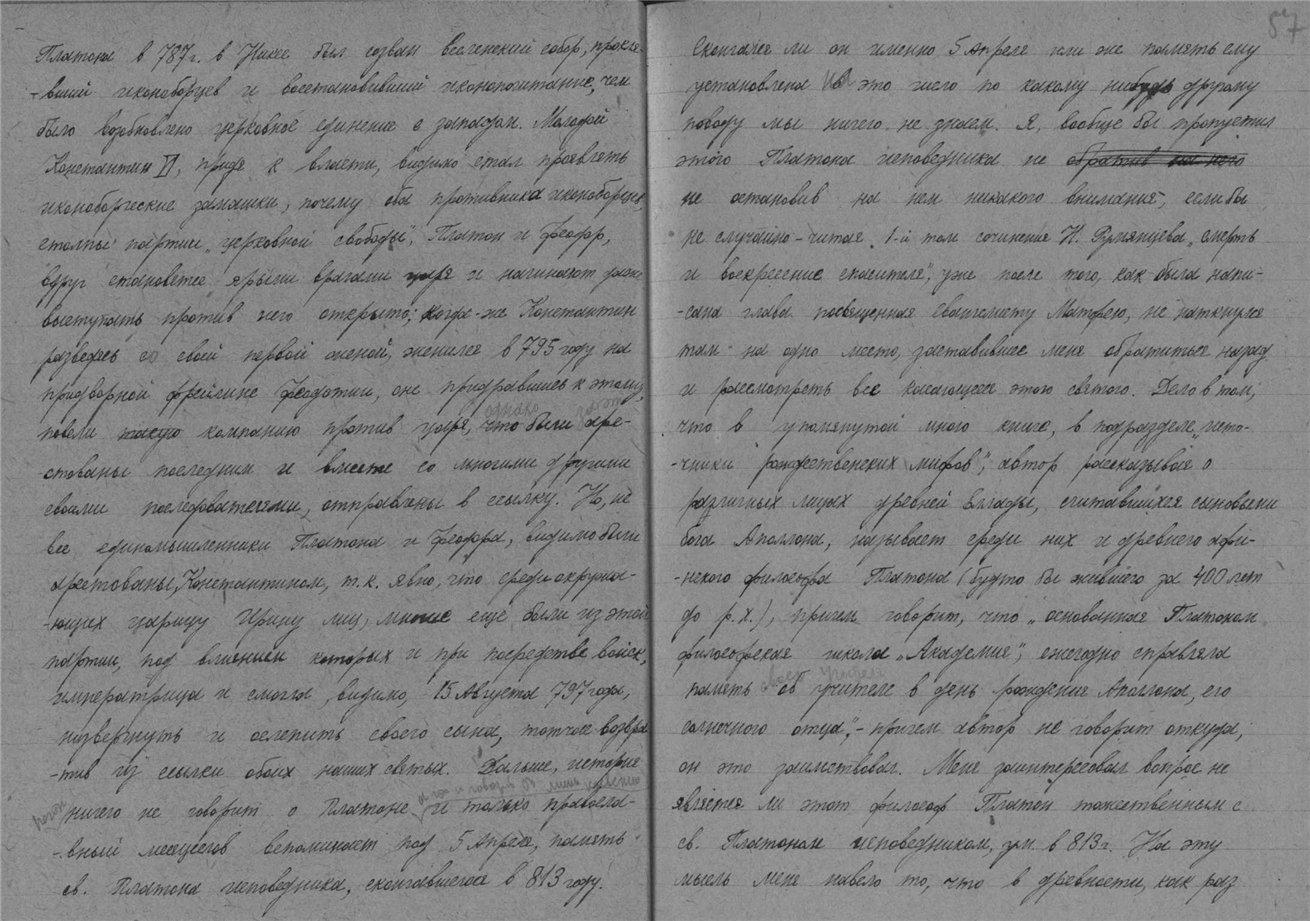 Платона в 787г. в Никее был созван вселенский собор, прокля-
-вший иконоборцев и восстановивший иконопочитание, чем
было возобновлено церковное единение с западом. Молодой
Константин VI, придя к власти, видимо стал проявлять
иконоборческие замашки, почему оба противника иконоборцев,
столпы партии „церковной свободы", Платон и Феодор,
вдруг становятся ярыми врагами царя и начинают даже
выступать против него открыто; когда-же Константин
разведясь со своей первой женой, женился в 795 году на
придворной фрейлине Феодотии, они придравшись к этому,
однако
повели такую компанию против царя, что были аре-
-стованы последним и вместе со многими другими
своими последователями, отправлены в ссылку. Но, не
все единомышленники Платона и Феодора, видимо были
арестованы Константином, т.к. явно, что среди окружа-
-ющих царицу Ирину лиц, многие ещё были из этой
партии, под влиянием которых и при посредстве войск,
императрица и смогла, видимо, 15 Августа 797 года,
низвергнуть и ослепить своего сына, тотчас возвра-
-тив из ссылки обоих наших святых. Дальше, история
ничего не говорит о Платоне, и только правосла-
-вный месяцеслов вспоминает под 5 Апреля, память
св. Платона исповедника, скончавшегося в 813 году.
57
Скончался ли он именно 5 Апреля или же память ему
установлена на это число по какому нибудь другому
поводу мы ничего не знаем. Я, вообще бы пропустил
этого Платона исповедника не обратив на него
не остановив на нем никакого внимания, если бы
не случайно-читая „1-й том сочинения Н. Румянцева „смерть
и воскресение спасителя", уже после того, как была напи-
-сана глава посвященная евангелисту Матфею, не наткнулся
там на одно место, заставившее меня обратиться назад
и рассмотреть все касающееся этого святого. Дело в том,
что в упомянутой мною книге, в подразделе „исто-
-чники рождественских мифов", автор рассказывая о
различных лицах древней Эллады, считавшихся сыновьями
бога Аполлона, называет среди них и древнего афи-
-нского философа Платона (будто бы жившего за 400 лет
до р.х.), причем говорит, что „основанная Платоном
философская школа „Академия", ежегодно справляла
своего учителя
память об учителе в день рождения Аполлона, его
солнечного отца", - причем автор не говорит откуда,
он это заимствовал. Меня заинтересовал вопрос не
является ли этот философ Платон тожественным с
св. Платоном исповедником, ум в 813 г. На эту
мысль меня навело то, что в древности, как раз